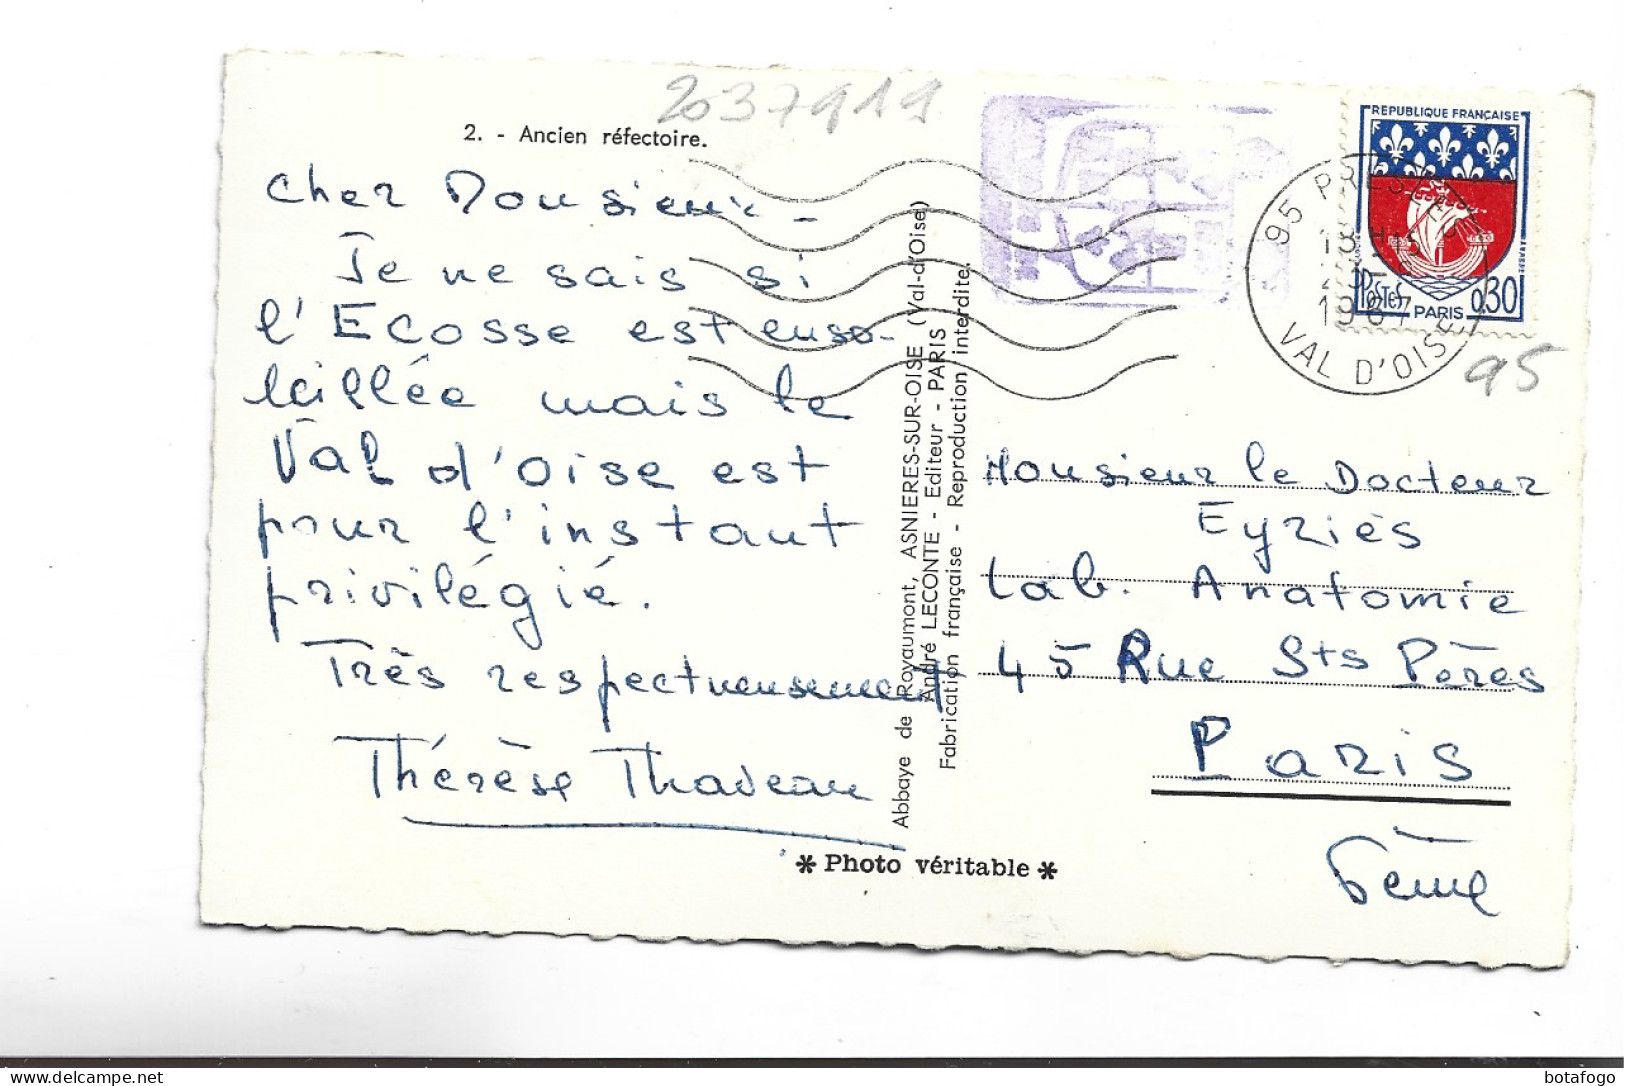 2037919
2. - Ancien réfectoire.
Cher Monsieur -
Je ne sais si
l'Ecosse est enso-
leillée mais le
Val d'Oise est
pour l'instant
privilégié.
Très respectueusement
Thérèse Thadeau
Abbaye de Royaumont, ASNIERES-SUR-OISE (Val-d'Oise)
André LECONTE - Editeur - PARIS
Fabrication française - Reproduction interdite.
* Photo véritable *
REPUBLIQUE FRANÇAISE
POSTES
PARIS
0,30
95 PRESLES
18 H 15
1967
VAL D'OISE
95
Monsieur le Docteur
Eyriès
Lab. Anatomie
45 Rue Sts Pères
Paris
6ème
delcampe.net
botafogo